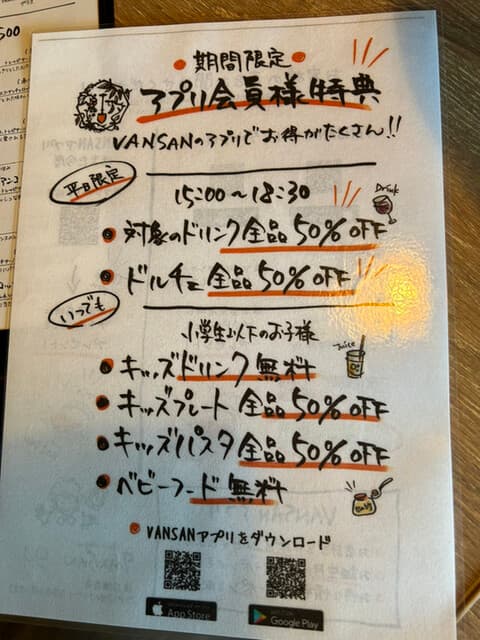 500
期間限定
アプリ会員様特典
VANSANのアプリでお得がたくさん!!
平日限定
15:00〜18:30
Drink
対象のドリンク全品50%OFF
ドルチェ全品50%OFF
いつでも
小学生以下のお子様
Juice
キッズドリンク無料
キッズプレート全品50%OFF
キッズパスタ全品50%OFF
ベビーフード無料
Baby
VANSANアプリをダウンロード
App Store
Google Play